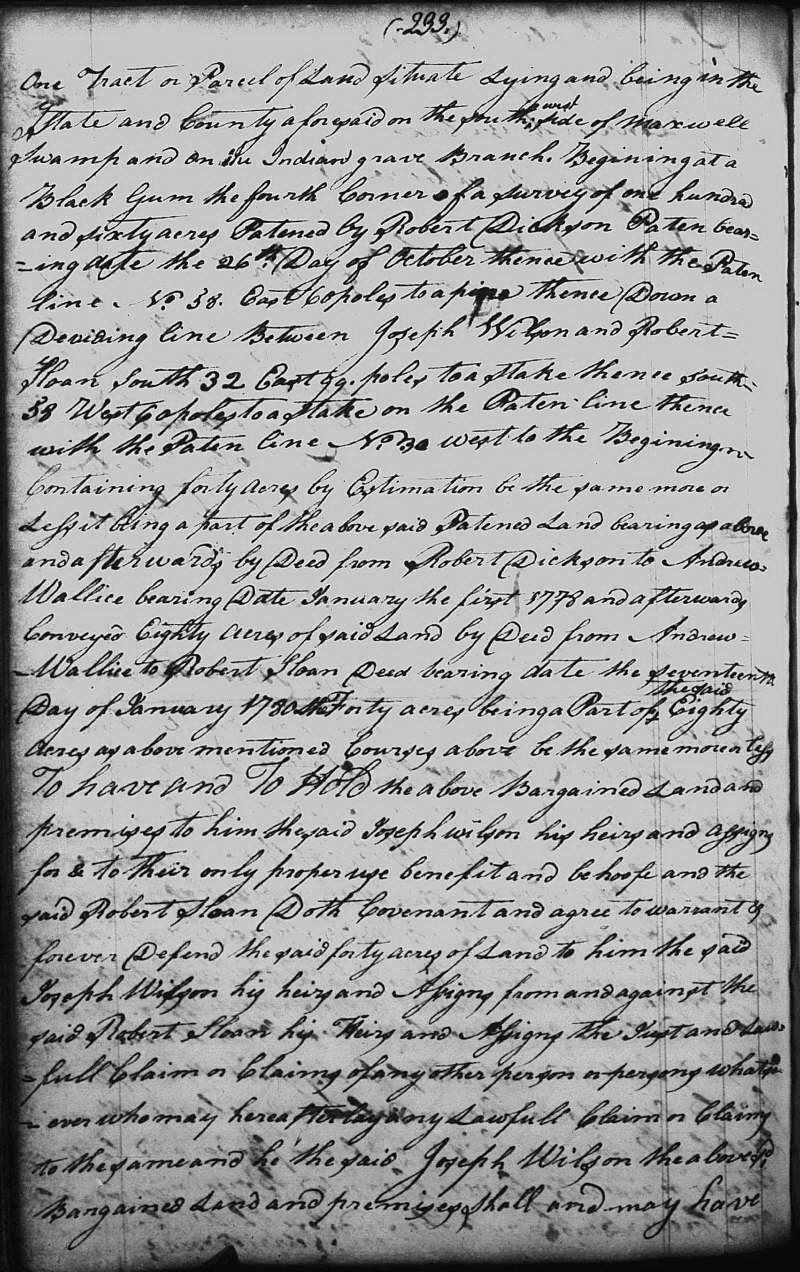 (233.)
One Tract or Parcel of Land situate Lying and being in the
State and County aforesaid on the south west side of Maxwell
Swamp and on the Indian grave Branch. Begining at a
Black Gum the fourth Corner of a survey of one hundrd
and sixty acres Patened by Robert Dickson Paten bear=
=ing date the 26th Day of October thence with the Paten
line No. 58. East 60 poles to a pine thence Down a
Deviding line Between Joseph Wilson and Robert=
Sloan South 32 East 99. poles to a stake thence south=
58 West 60 poles to a stake on the Paten line thence
with the Paten line No 30 west to the Begining
Containing forty acres by Estimation be the same more or
Less it being a part of the above said Patened Land bearing as above
and afterwards by Deed from Robert Dickson to Andrew=
Wallice bearing Date January the first 1778 and afterwards
Conveyed Eighty acres of said Land by Deed from Andrew=
=Wallice to Robert Sloan Deed bearing date the seventeenth
Day of January 1780 the Forty acres being a Part of the said Eighty
acres as above mentioned Courses above be the same more or less
To have and To Hold the above Bargained Land and
premises to him the said Joseph wilson his heirs and assigns
for & to their only proper use benefit and behoofe and the
said Robert Sloan Doth Covenant and agree to warrant &
forever Defend the said forty acres of Land to him the said
Joseph Wilson his heirs and Assigns from and against the
said Robert Sloan his Heirs and Assigns the Just and Law=
=full Claim or Claims of any other person or persons whatso
=ever who may hereafter lay any Lawfull Claim or Claims
to the same and he the said Joseph Wilson the above sd.
Bargained Land and premises shall and may have